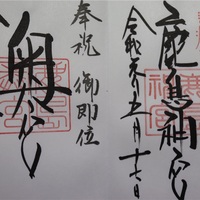 鹿島神宮
令和元年五月十七日
奉祝 御即位
奥宮